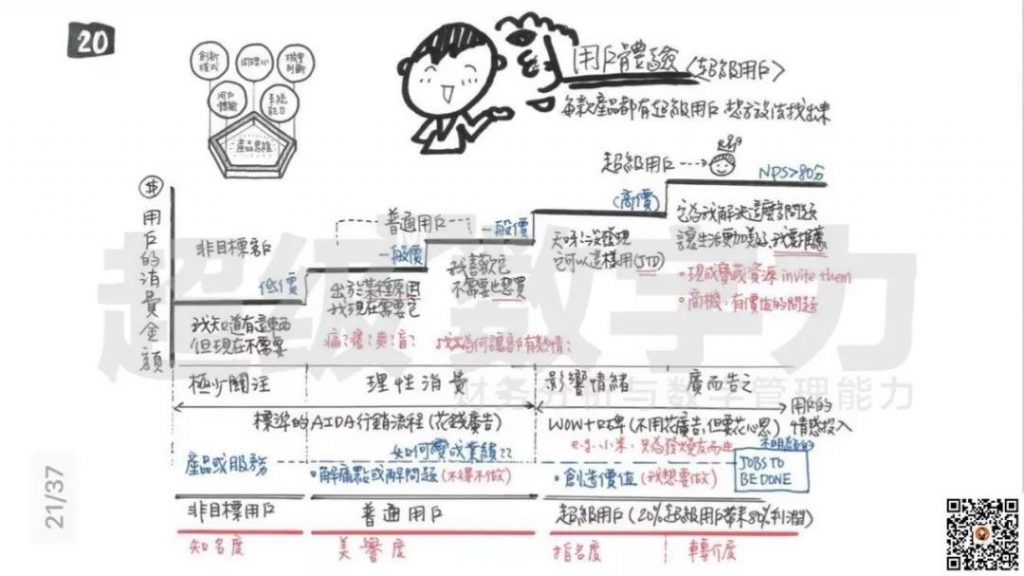 20
創新
模式
同理心
機會
判斷
用戶
體驗
系統
能力
產品思維
用戶體驗〈超級用戶〉
每款產品都有超級用戶,想方設法找出來
超級用戶
NPS>80分
$
用戶的消費金額
非目標客戶
普通用戶
低價
一般價
一般價
(高價)
我知道有這東西
但現在不需要
出於某種原因
我現在需要它
痛?癢?爽?盲?
我喜歡它
不需要也想買
找出為何讓客戶有熱情?
天呀!沒發現
它可以這樣用(JTD)
它為我解決這麼多問題
讓生活更加美好,我要推薦
•現成寶藏資源 invite them
•商機:有價值的問題
超級數字力
財务分析与数字管理能力
極少關注
理性消費
影響情緒
廣而告之
用戶的
情感投入
標準的AIDA行銷流程(花錢廣告)
WOW+口碑(不用花廣告,但要花心思)
e.g. 小米:只為發燒友而生
如何變成業績??
產品或服務
•解痛點或解問題(不得不做)
•創造價值(我想要做)
JOBS TO
BE DONE
非目標用戶
普通用戶
超級用戶(20%超級用戶帶來80%利潤)
知名度
美譽度
指名度
轉介度
21/37